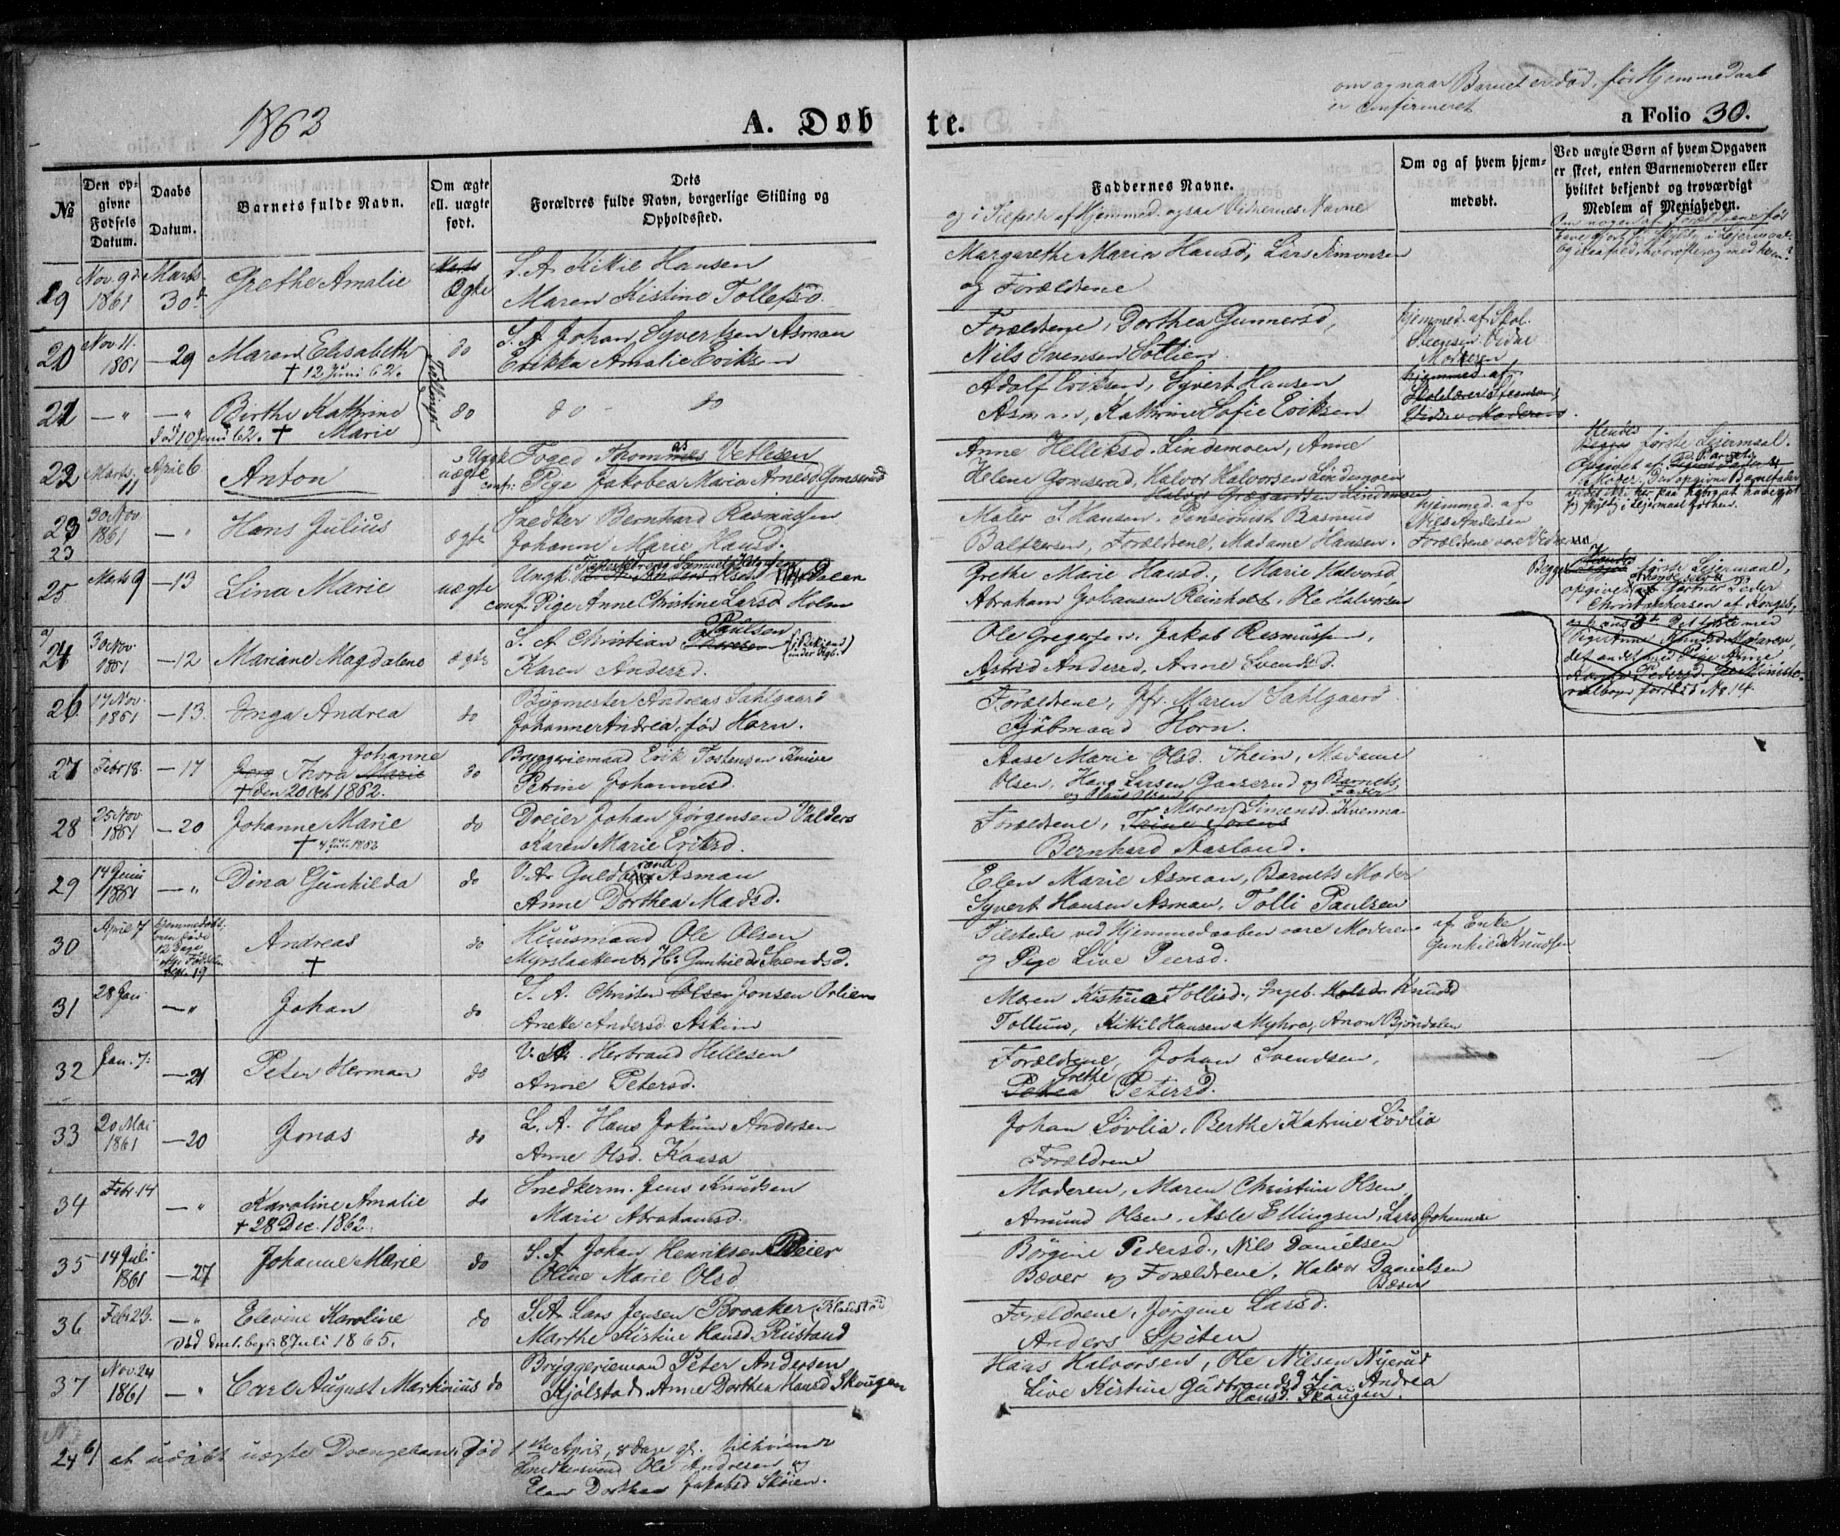 1863
A. Døbte.
om og naar Barnet er død, før Hjemmedaab
er confirmeret
a Folio 30.
№
Den opgivne Fødsels Datum.
Daabs Datum.
Barnets fulde Navn.
Om ægte ell. uægte født.
Dets Forældres fulde Navn, borgerlige Stilling og Opholdssted.
Faddernes Navne.
og i Tilfælde af Hjemmed. ogsaa Vidnernes Navne
Om og af hvem hjemmedøbt.
Ved uægte Børn af hvem Opgaven er skeet, enten Barnemoderen eller hvilket bekjendt og troværdigt Medlem af Menigheden.
19 Nov. 9d 1861 Marts 30t Grethe Amalie Ægte S. A. Kittil Hansen
Maren Kistine Tollefsd.
Margarethe Maria Hansd, Lars Simonsen
og Forældrene
20 Nov. 11. 1861 — 29 Maren Elisabeth do S. A. Johan Syvertsen Asman
† 12 Juni 62. Tvillinger Erikka Amalie Eriksen
Forældrene, Dorthea Gunnersd,
Nils Svensen Sollien.
hjemmed. af
21 — „ — „ Birthe Kathrine do do do
død 10 Juni 62. † Marie
Adolf Eriksen, Syvert Hansen
Asman, Kathrine Sofie Eriksen
hjemmed. af
22 Marts 11 April 6 Anton uægte Foged Thommas Vetlesen
conf. Pige Jakobea Maria Arnesd Gomserud
Anne Helliksd. Lindemoen, Anne
Helene Gomserud, Halvor Halvorsen Lindemoen
Hendes første Leiermaal.
Opgivet af
Moder.
23 30 Nov 1861 — „ Hans Julius ægte Snedker Bernhard Rasmussen
23 Johanne Marie Hansd.
Maler S. Hansen, Pensionist Rasmus
Baltzersen, Forældrene, Madame Hansen.
hjemmed. af
Nils Andersen
Forældrene vare Vidner
25 Marts 9 — 13 Lina Marie uægte Ungk. Dalen
conf. Pige Anne Christine Larsd Holm
Grethe Marie Hansd, Marie Halvorsd
Abraham Johansen Reinholt, Ole Halvorsen
Begges første Leiermaal,
opgivet
Gartner Peder
Christophersen af Kongsb.
24 a) 30 Nov 1861 — 12 Mariane Magdalene ægte S. A. Christian Paulsen
Karen Andersd.
Ole Gregersen, Jakob Rasmussen,
Astrid Andersd, Anne Svendsd.
for 1855 No 14.
26 17 Nov. 1861 — 13 Inga Andrea do Bygmester Andreas Sahlgaard
Johanne Andrea, fød Horn.
Forældrene, Jfr. Maren Sahlgaard
Kjøbmand Horn.
27 Febr 18. — 17 Thora Marie Johanne do Bryggeriemand Erik Tostensen
† den 20 Oct 1862. Petrine Johannesd.
Aase Marie Olsd. Thein, Madame
Olsen, Hans Larsen Gaaserud og Barnets Fader
og Olaus Olsen
28 25 Nov 1861 — 20 Johanne Marie do Dreier Johan Jørgensen Valders
† 1862 Karen Marie Eriksd.
Forældrene, Maren Simensd. Kverma
Bernhard Aasland.
29 14 Juni 1861 — „ Dina Gunhilda do V. A. Guldbrand Asman
Anne Dorthea Madsd.
Elen Marie Asman, Barnets Moder
Syvert Hansen Asman, Tolli Paulsen
30 April 7 Hjemmedøbt Andreas † do Huusmand Ole Olsen
Myrslaatten & H: Gunhild Svendsd.
Tilstede ved Hjemmedaaben vare Moderen
og Pige Live Peersd.
af Enke
Gunhild Knudsen
31 28 Jan — „ Johan do S. A. Christen Olsen Jonsen Orlien
Anette Andersd Askim
Maren Kistine Tollisd., Ingeb. Knudsd
Tollum, Kittil Hansen Myhra, Anon Bjøndalen
32 Jan. 7: — 21 Peter Herman do V. A. Herbrand Hellesen
Anne Petersd.
Forældrene, Johan Svendsen,
Grethe Petersd.
33 20 Mai 1861 — 20 Jonas do L. A. Hans Jokum Andersen
Anne Olsd. Kaasa
Johan Løvlia, Berthe Katrine Løvlia
Forældrene
34 Febr 14 — „ Karoline Amalie do Snedkerm. Jens Knudsen
† 28 Dec. 1862. Marie Abrahamsd.
Moderen, Maren Christine Olsen
Amund Olsen, Asle Ellingsen, Lars Johannesen
35 14 Juli 1861 — 27 Johanne Marie do S. A. Johan Henriksen Beier
Oline Marie Olsd
Børgine Pedersd., Nils Danielsen
Bæver og Forældrene, Halvor Danielsen
Bæver
36 Febr 23. — „ Elevine Karoline do S. A. Lars Jensen Braaker
død 8 Juli 1865. Marthe Kistine Hansd. Rustand
Forældrene, Jørgine Larsd.
Anders Spiten
37 Nov. 24 1861 — „ Carl August Martinius do Bryggerimand Peter Andersen
Hjølstad, Anne Dorthea Hansd Skougen
Hans Halvorsen, Ole Nilsen Nyerud
Live Kistine Gudbrandsd Lia. Andrea
Hansd. Skaugen.
24 b) et udøbt uægte Drengebarn. Død 1ste April, 8 Dage gl. tilhørende
Snedkersvend Ole Andresen og
Elen Dorthea Jakobsd Skoien.